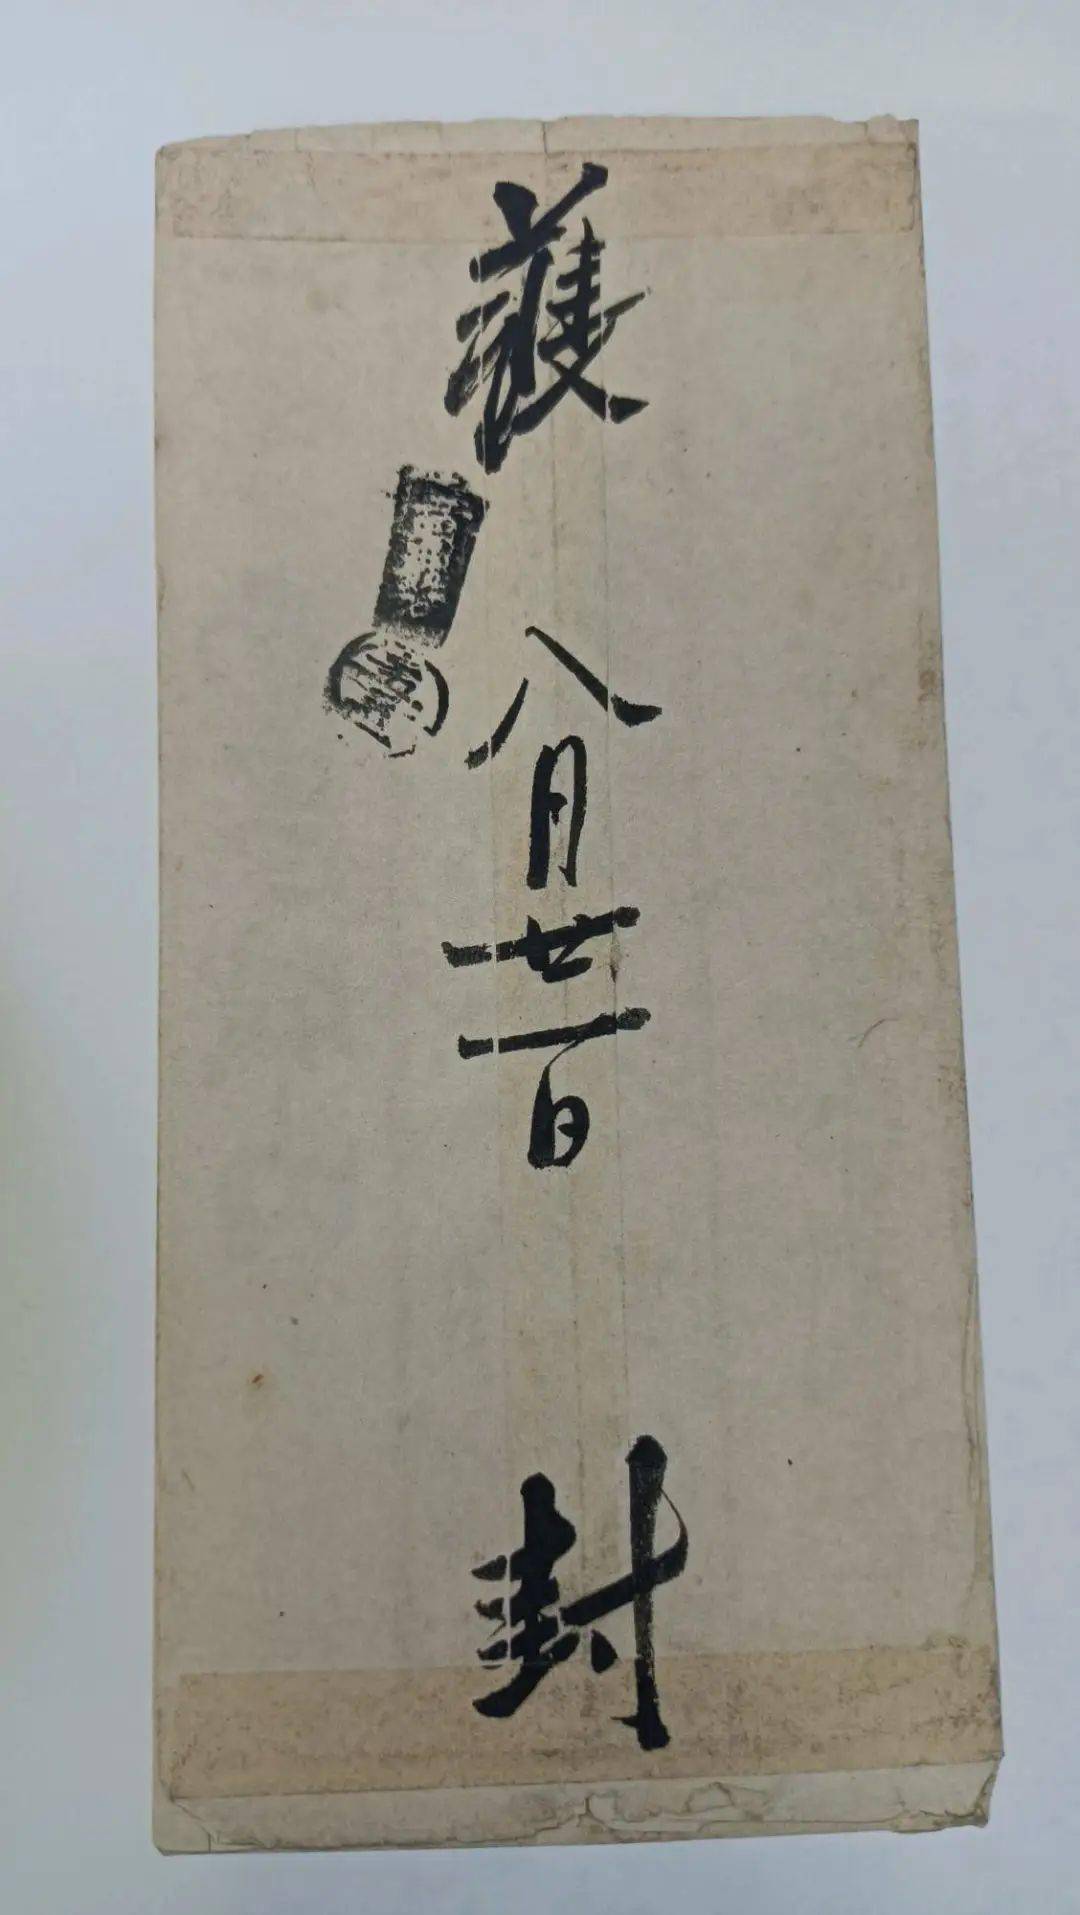 護
八月廿一日
封